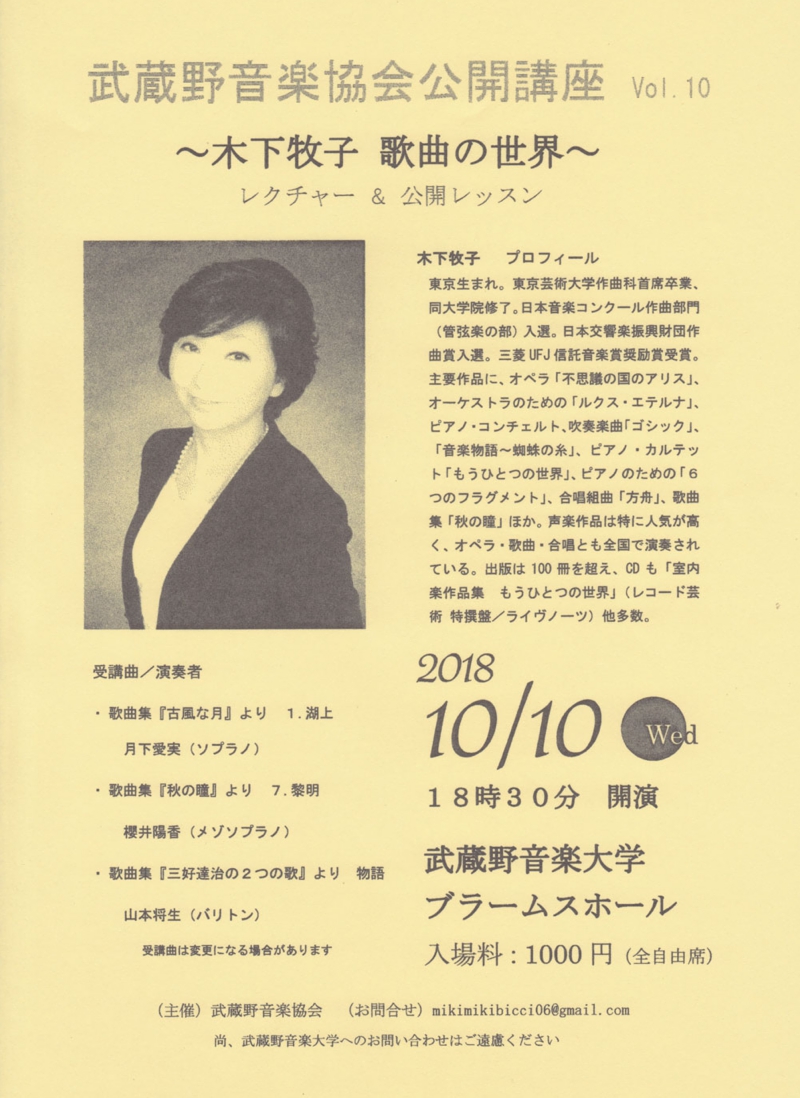 武蔵野音楽協会公開講座 Vol.10
～木下牧子 歌曲の世界～
レクチャー & 公開レッスン
木下牧子 プロフィール
東京生まれ。東京芸術大学作曲科首席卒業、
同大学院修了。日本音楽コンクール作曲部門
（管弦楽の部）入選。日本交響楽振興財団作
曲賞入選。三菱UFJ信託音楽賞奨励賞受賞。
主要作品に、オペラ「不思議の国のアリス」、
オーケストラのための「ルクス・エテルナ」、
ピアノ・コンチェルト、吹奏楽曲「ゴシック」、
「音楽物語～蜘蛛の糸」、ピアノ・カルテッ
ト「もうひとつの世界」、ピアノのための「６
つのフラグメント」、合唱組曲「方舟」、歌曲
集「秋の瞳」ほか。声楽作品は特に人気が高
く、オペラ・歌曲・合唱とも全国で演奏され
ている。出版は100冊を超え、CDも「室内
楽作品集　もうひとつの世界」（レコード芸
術 特撰盤／ライヴノーツ）他多数。
受講曲／演奏者
・歌曲集『古風な月』より　１.湖上
月下愛実（ソプラノ）
・歌曲集『秋の瞳』より　７.黎明
櫻井陽香（メゾソプラノ）
・歌曲集『三好達治の２つの歌』より　物語
山本将生（バリトン）
受講曲は変更になる場合があります
2018
10/10 Wed
１８時３０分　開演
武蔵野音楽大学
ブラームスホール
入場料：1000円（全自由席）
（主催）武蔵野音楽協会　（お問合せ）mikimikibicci06@gmail.com
尚、武蔵野音楽大学へのお問い合わせはご遠慮ください